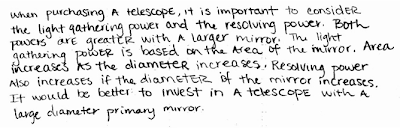 When purchasing A telescope, it is important to consider
the light gathering power and the resolving power. Both
powers are greater with A larger mirror. The light
gathering power is based on the Area of the mirror. Area
increases As the diameter increases. Resolving power
Also increases if the diameter of the mirror increases.
It would be better to invest in A telescope with A
large diameter primary mirror.